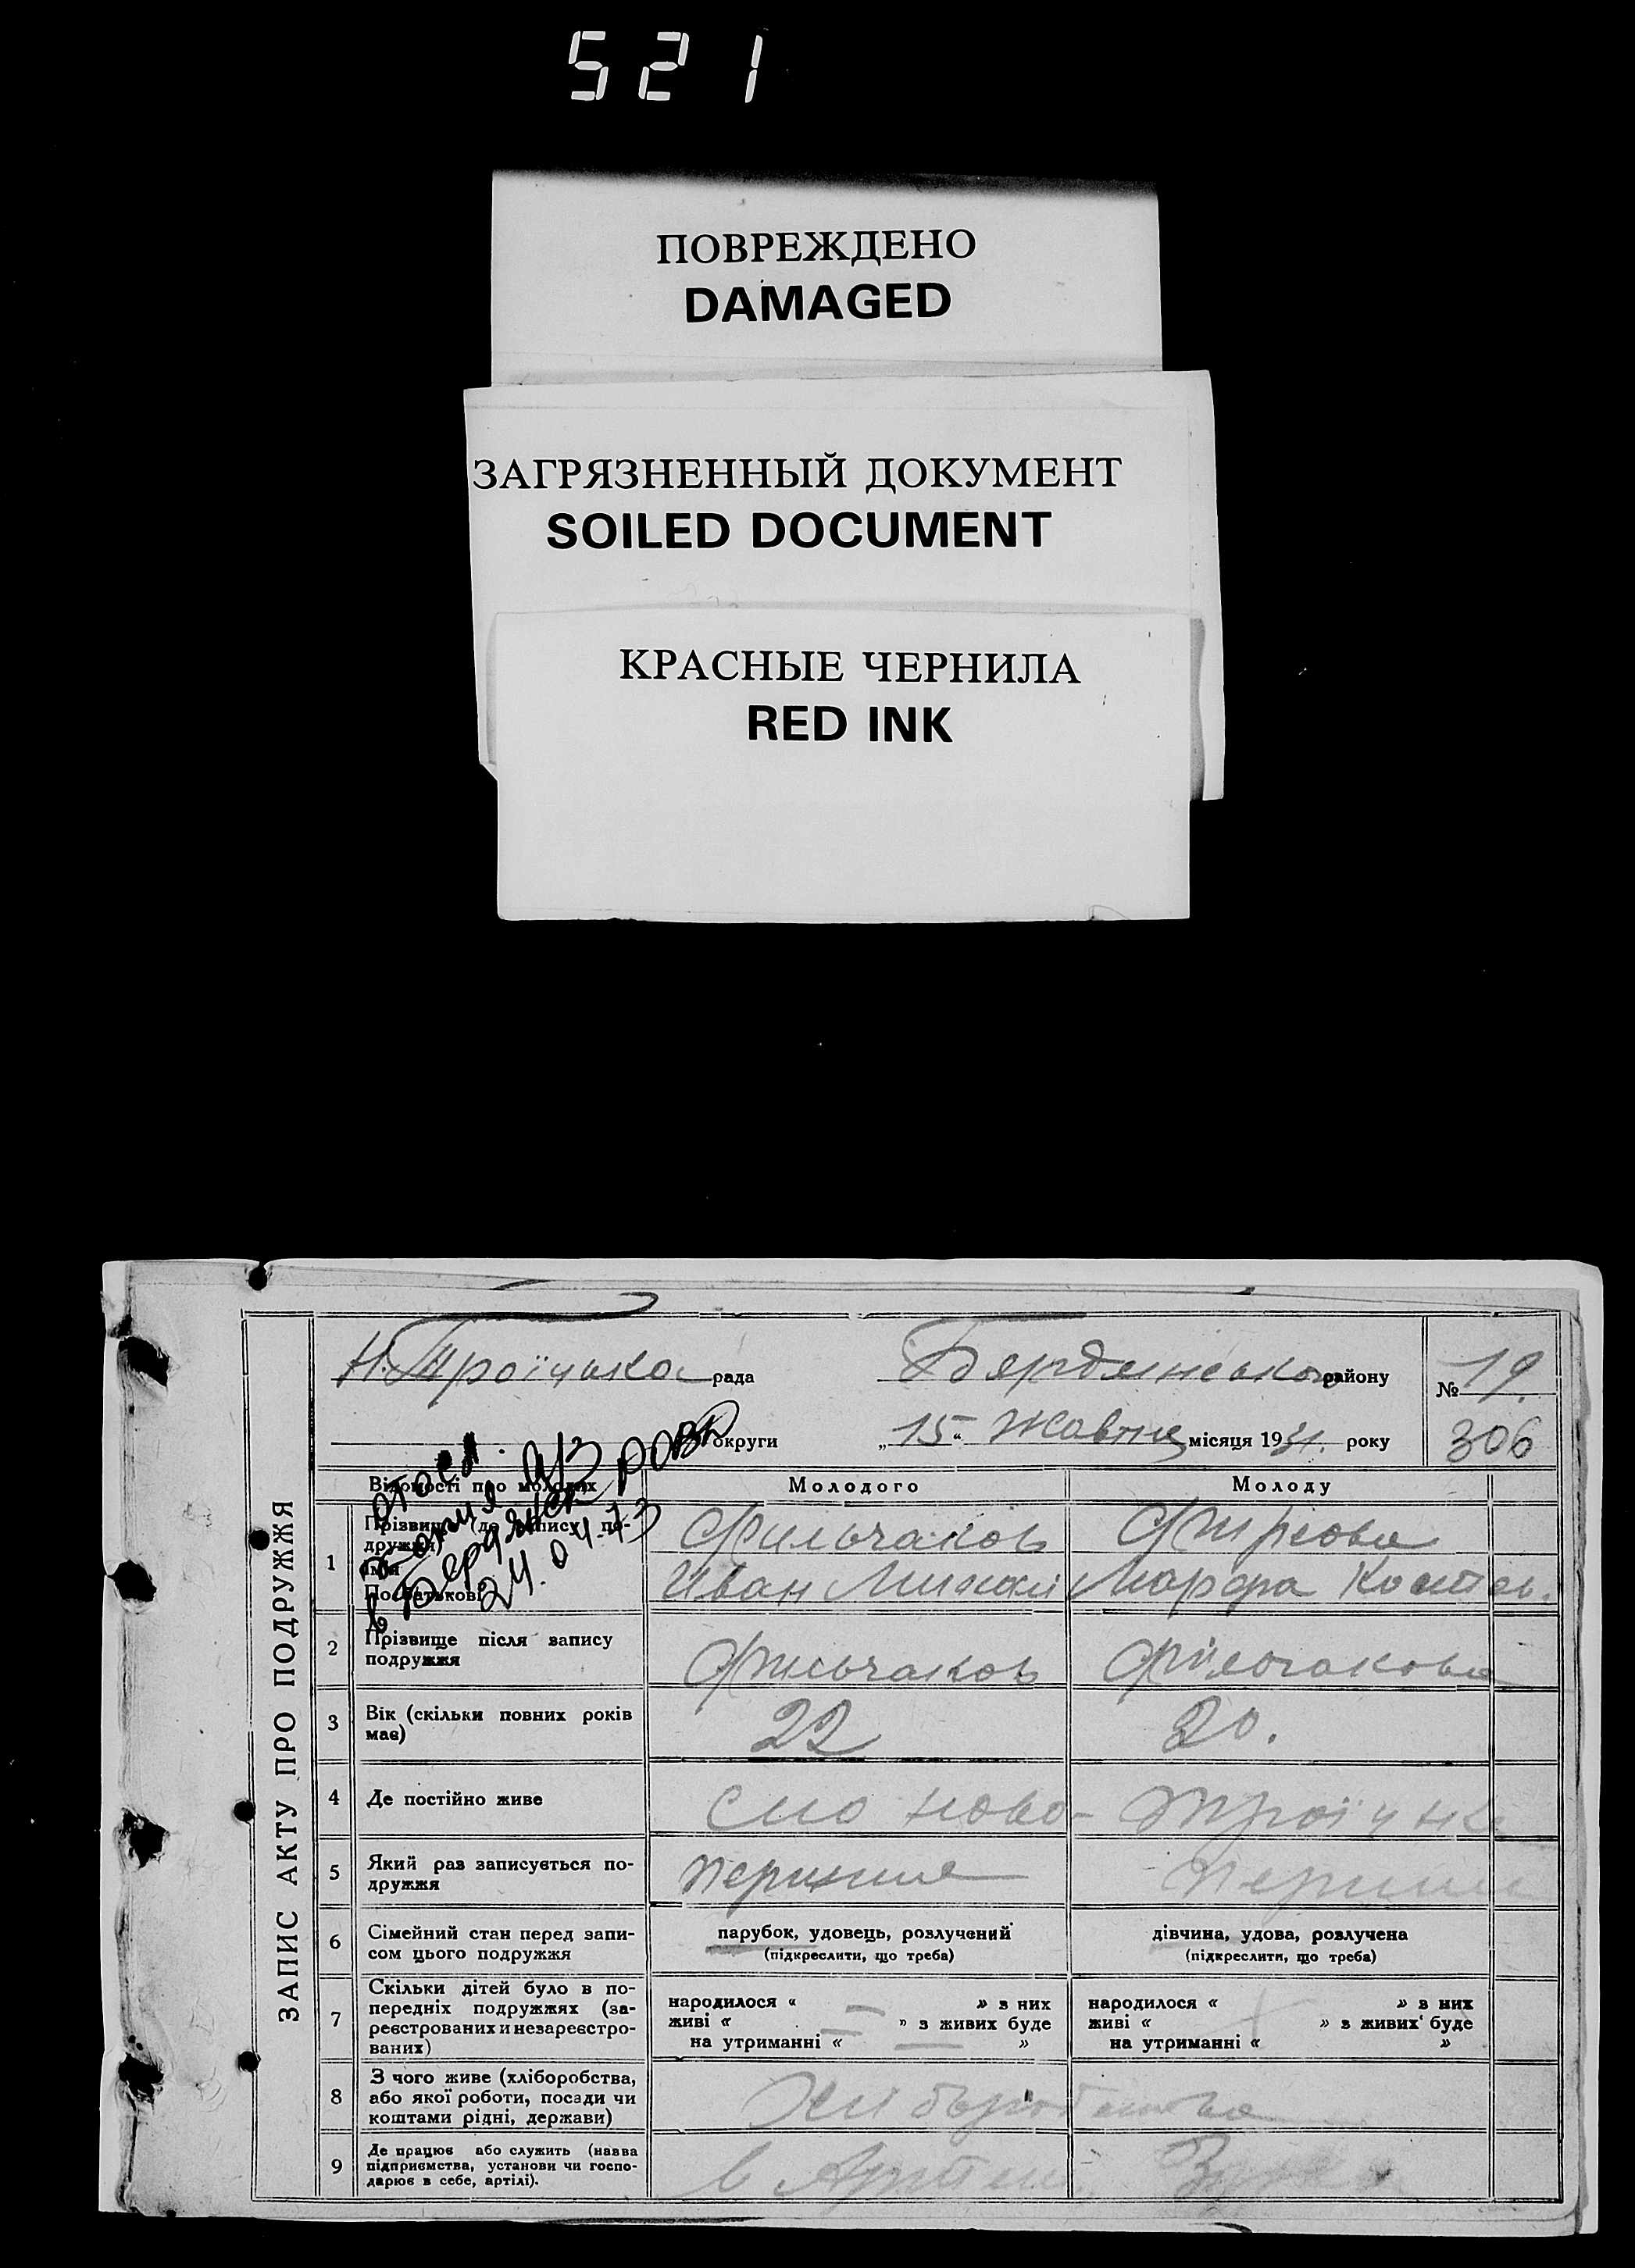 521
ПОВРЕЖДЕНО
DAMAGED
ЗАГРЯЗНЕННЫЙ ДОКУМЕНТ
SOILED DOCUMENT
КРАСНЫЕ ЧЕРНИЛА
RED INK
ЗАПИС АКТУ ПРО ПОДРУЖЖЯ
Н. Троїцька рада Бердянського району № 19.
округи „15“ Жовтня місяця 1931. року 306
24.04.43
Відомості про молодих Молодого Молоду
1 Прізвище (до запису по-
дружжя) Фильчаков
імя
По батькові Иван Михай Марфа Костев.
2 Прізвище після запису
подружжя Фильчаков Фільчакова
3 Вік (скільки повних років
має) 22 20.
4 Де постійно живе село Ново- Троїцьке
5 Який раз записується по-
дружжя перший перший
6 Сімейний стан перед запи-
сом цього подружжя парубок, удовець, розлучений дівчина, удова, розлучена
(підкреслити, що треба) (підкреслити, що треба)
7 Скільки дітей було в по-
передніх подружжях (за-
реєстрованих и незареєстро-
ваних) народилося « — » з них народилося « » в них
живі « — » з живих буде живі « » з живих буде
на утриманні « — » на утриманні « »
8 З чого живе (хліборобства,
або якої роботи, посади чи
коштами рідні, держави) Хліборобства
9 Де працює або служить (назва
підприємства, установи чи госпо-
дарює в себе, артілі). в Артелі